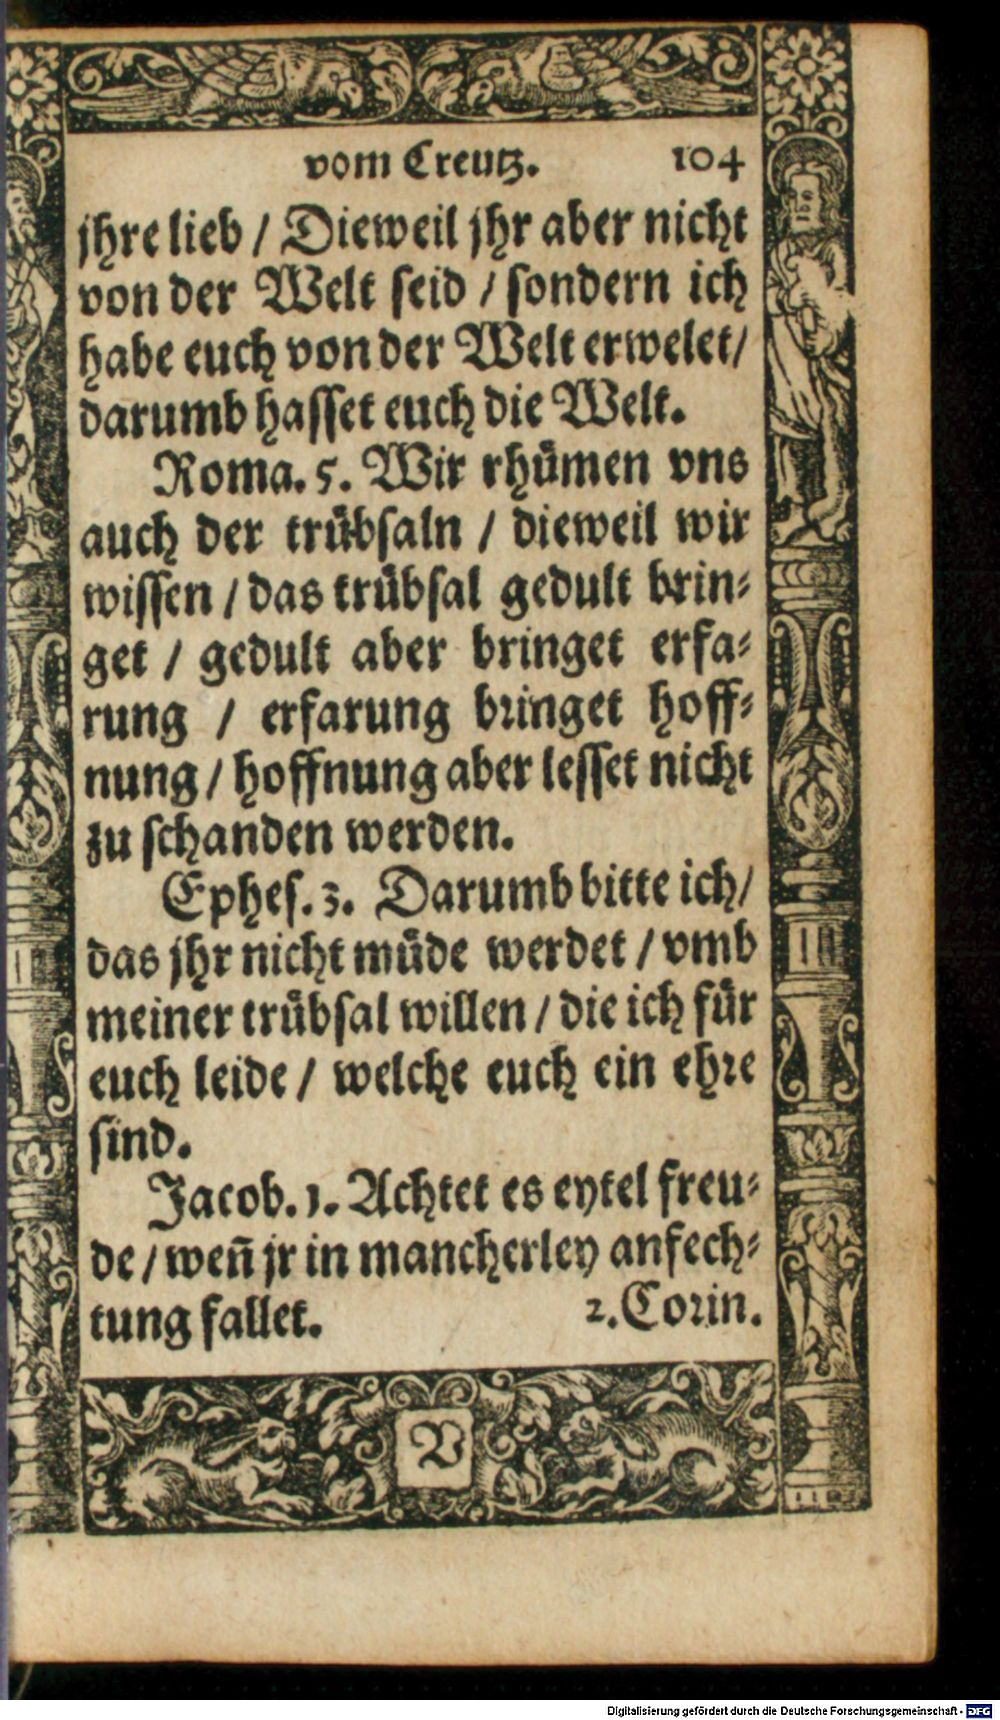 vom Creutz. 104
jhre lieb / Dieweil jhr aber nicht
von der Welt seid / sondern ich
habe euch von der Welt erwelet /
darumb hasset euch die Welt.
Roma. 5. Wir rhuͤmen vns
auch der truͤbsaln / dieweil wir
wissen / das truͤbsal gedult brin⸗
get / gedult aber bringet erfa⸗
rung / erfarung bringet hoff⸗
nung / hoffnung aber lesset nicht
zu schanden werden.
Ephes. 3. Darumb bitte ich /
das jhr nicht muͤde werdet / vmb
meiner truͤbsal willen / die ich fuͤr
euch leide / welche euch ein ehre
sind.
Jacob. 1. Achtet es eytel freu⸗
de / weñ jr in mancherley anfech⸗
tung fallet. 2. Corin.
V
Digitalisierung gefördert durch die Deutsche Forschungsgemeinschaft - DFG